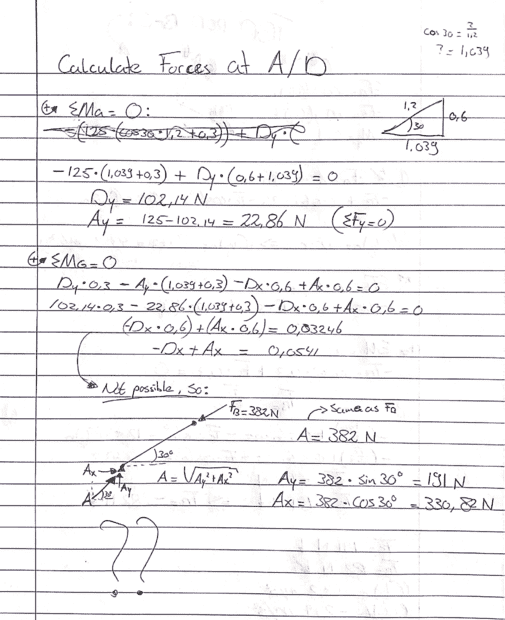 cos 30 = ?/1,2
? = 1,039
Calculate Forces at A/D
ΣMa = 0:
1,2
0,6
30
1,039
-125·(1,039+0,3) + Dy·(0,6+1,039) = 0
Dy = 102,14 N
Ay = 125-102,14 = 22,86 N (ΣFy=0)
ΣMG = 0
Dy·0,3 - Ay·(1,039+0,3) - Dx·0,6 + Ax·0,6 = 0
102,14·0,3 - 22,86·(1,039+0,3) - Dx·0,6 + Ax·0,6 = 0
(-Dx·0,6) + (Ax·0,6) = 0,03246
-Dx + Ax = 0,0541
Not possible, so:
FB=382N
Same as FB
A = 382 N
30°
Ax
A = √Ay²+Ax²
Ay = 382 · sin 30° = 191 N
A
30
Ay
Ax = 382 · cos 30° = 330,82 N
??